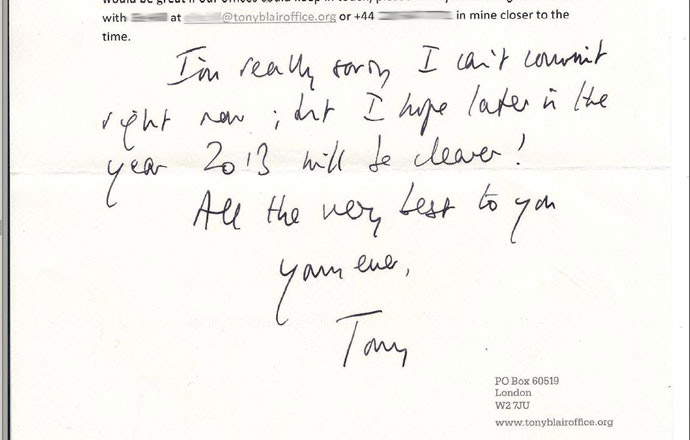 would be great if our offices could keep in touch,
with at @tonyblairoffice.org or +44 in mine closer to the
time.
I'm really sorry I can't commit
right now ; but I hope later in the
year 2013 will be clearer!
All the very best to you
Yours ever,
Tony
PO Box 60519
London
W2 7JU
www.tonyblairoffice.org